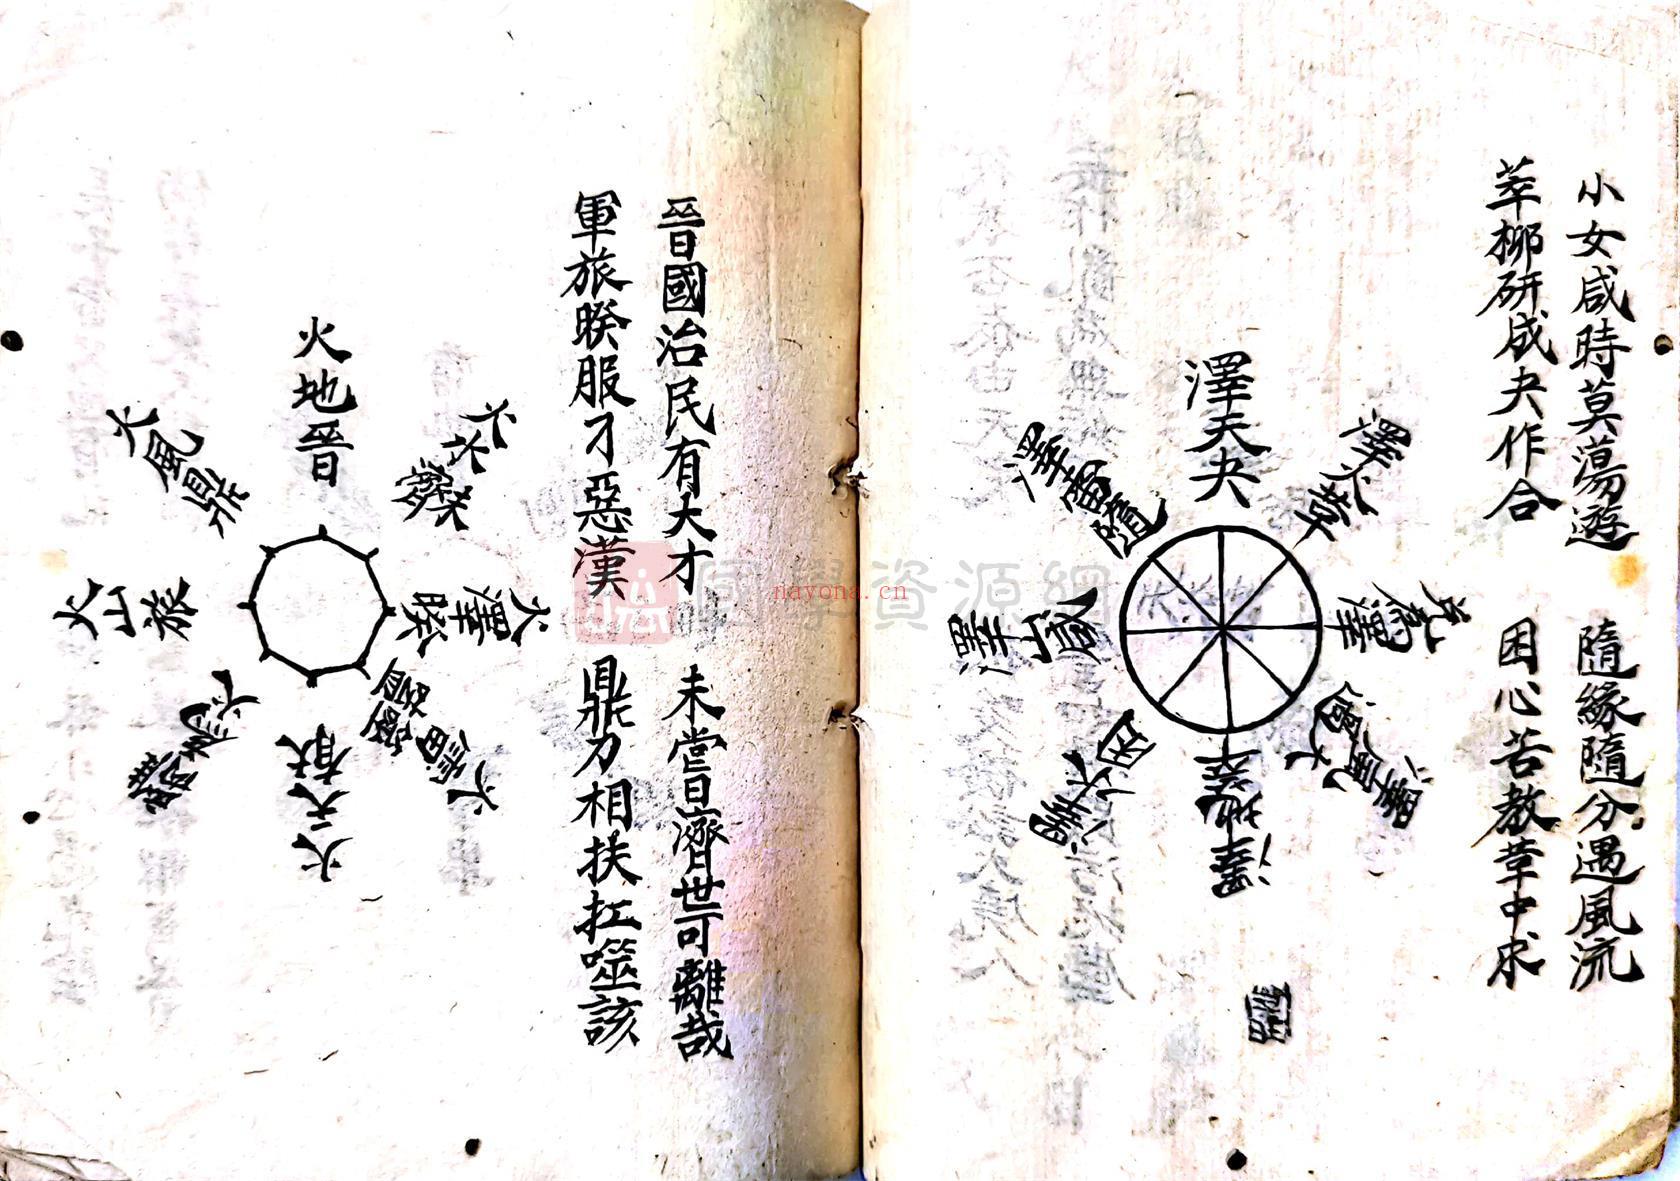 小女咸時莫蕩遊 隨緣隨分遇風流
萃柳研成夬作合 困心苦教革中求
澤天夬
澤火革
兌爲澤
澤風大過
澤地萃
澤水困
澤山咸
澤雷隨
晉國治民有大才 未嘗日濟世可離哉
軍旅睽服刀惡漢 鼎力相扶扛噬該
火地晉
火水未濟
火澤睽
火雷噬嗑
火天大有
離爲火
火山旅
火風鼎
國學資源網
nayona.cn